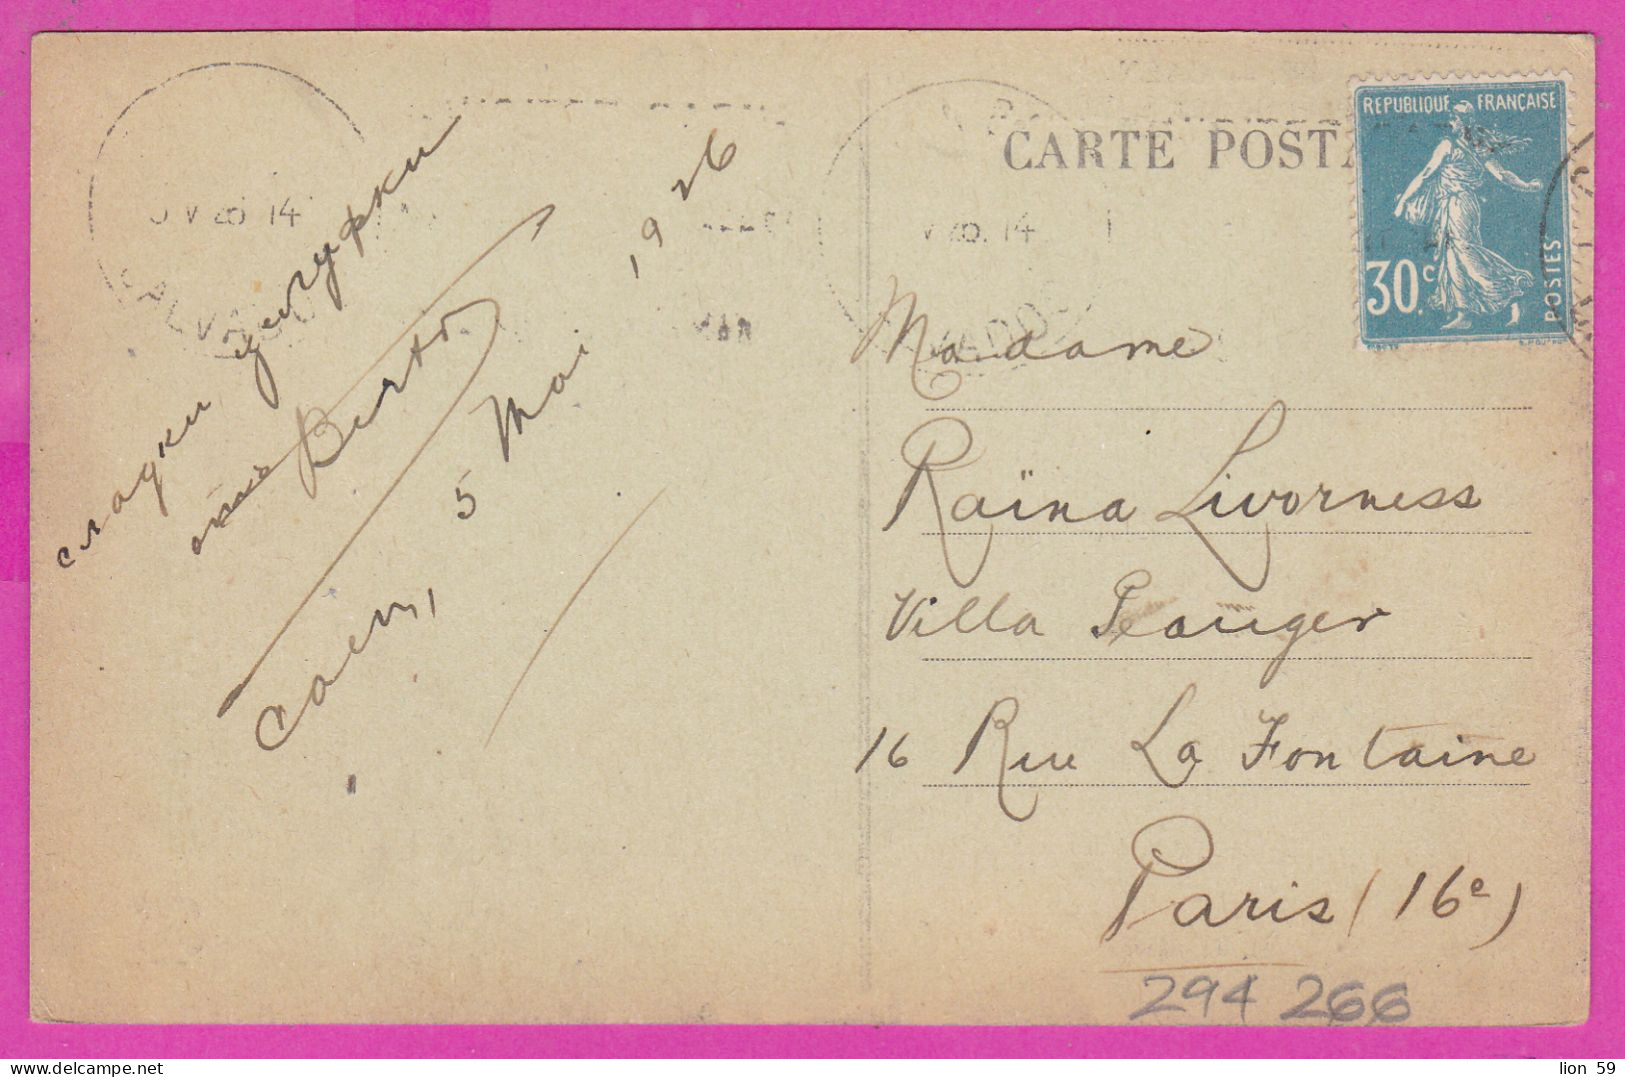 сладки целувки
отъ Berta
Caen, 5 Mai 1926
CARTE POSTA
REPUBLIQUE FRANÇAISE
30c.
POSTES
V 26 14
CALVADOS
V 26. 14
VADOS
Madame
Raïna Livorness
Villa Peauger
16 Rue La Fontaine
Paris (16e)
294 266
lion 59